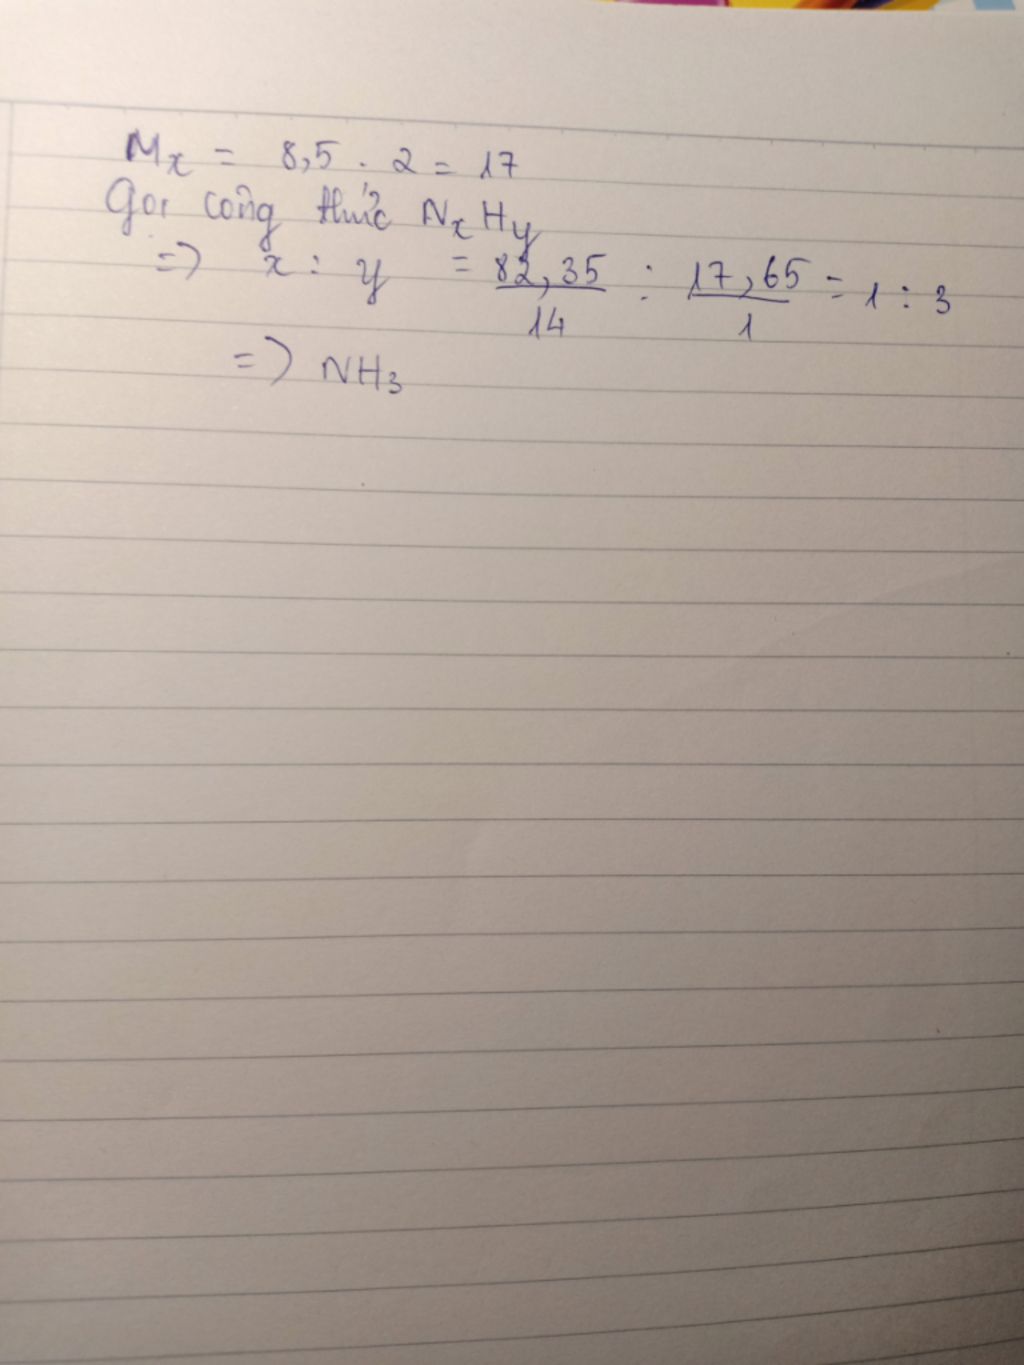 Mx = 8,5 . 2 = 17
Gọi công thức NxHy
=> x : y = 82,35/14 : 17,65/1 = 1 : 3
=> NH3